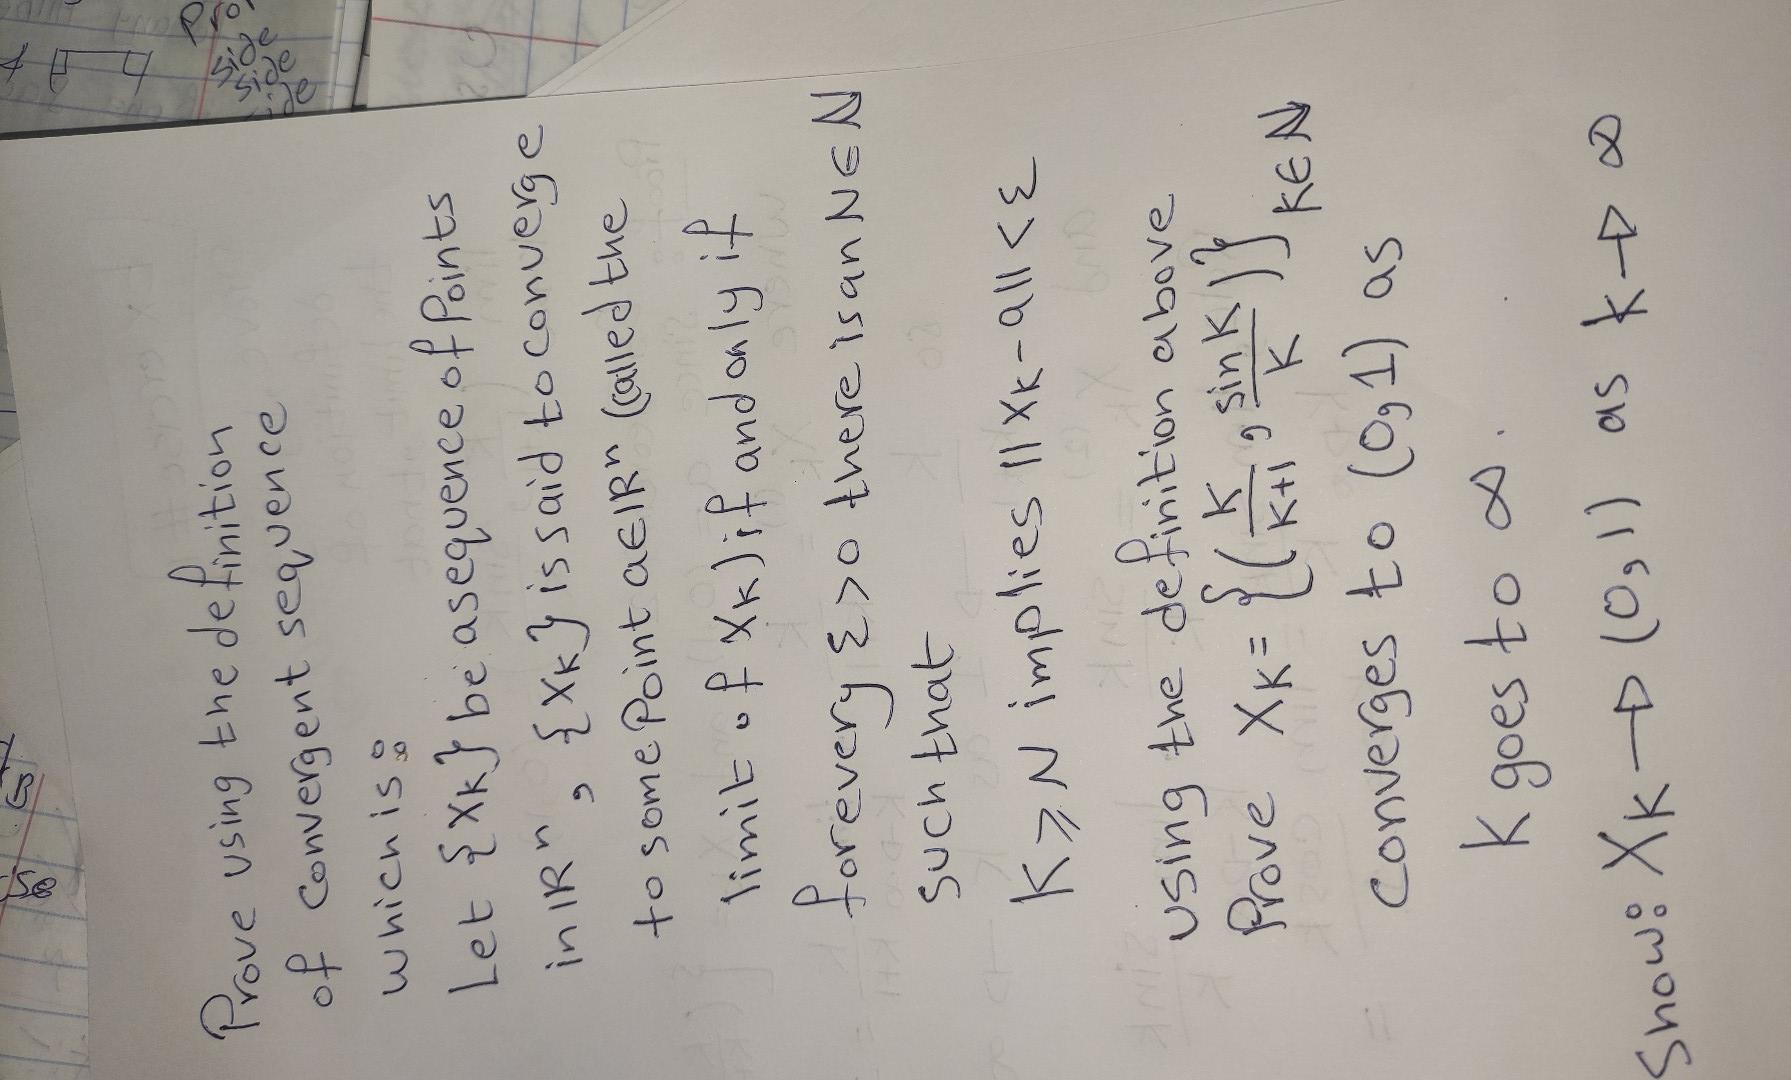 Prove using the definition
of convergent sequence
which is:
Let {xk} be a sequence of Points
in IRⁿ, {xk} is said to converge
to some Point a∈IRⁿ (called the
limit of xk) if and only if
for every ε>0 there is an N∈N
such that
K≥N implies ||xk-a||<ε
using the definition above
Prove Xk={(K/K+1, sin K/K)} K∈N
Converges to (0,1) as
K goes to ∞.
Show: Xk→(0,1) as k→∞
Pro
side
side
ide